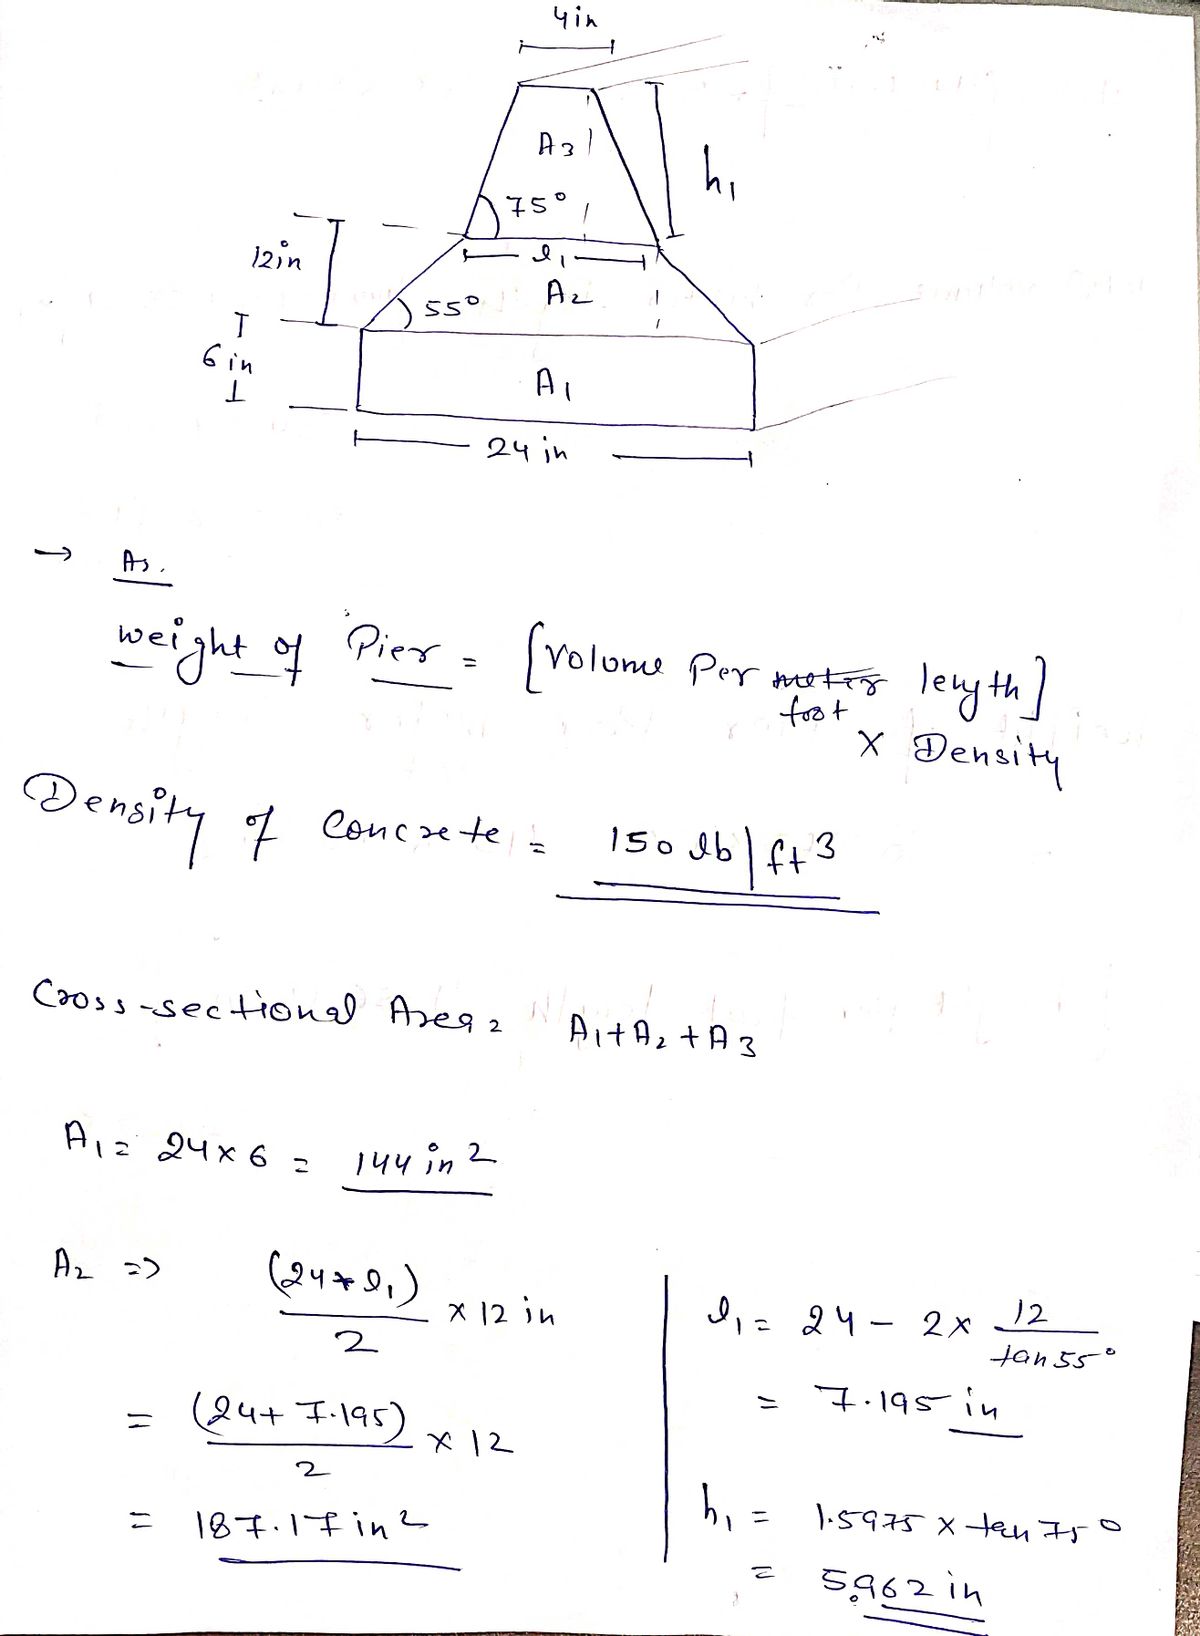 4in
A3
h1
75°
12in
l1
A2
55°
6in
A1
24 in
→ As.
weight of Pier = [Volume Per meter length]
foot
× Density
Density of Concrete = 150 lb/ft3
Cross-sectional Area = A1+A2+A3
A1 = 24×6 = 144 in2
A2 => (24+l1)/2 × 12 in
= (24+7.195)/2 × 12
= 187.17in2
l1 = 24 - 2× 12/tan55°
= 7.195 in
h1 = 1.5975 × tan 75°
= 5.962 in